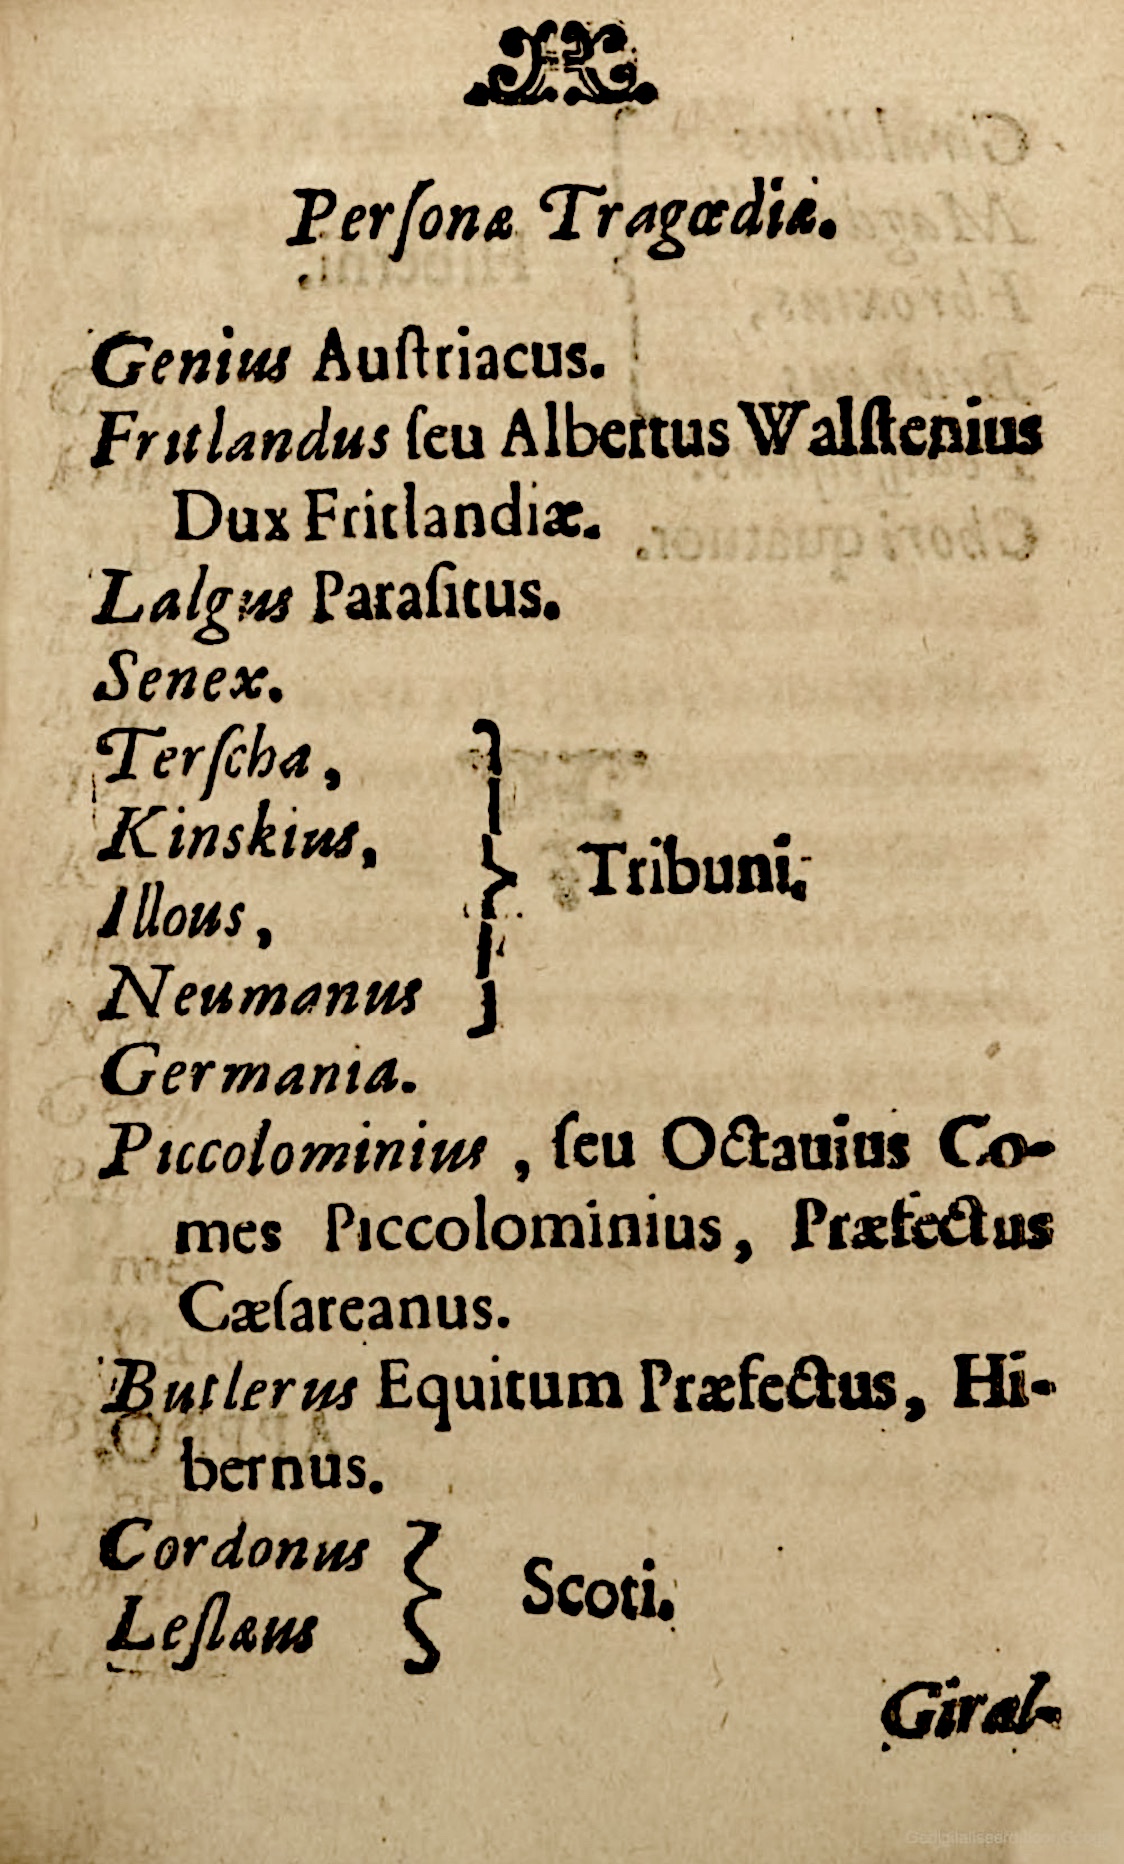 Perſonæ Tragœdiæ.
Genius Auſtriacus.
Fritlandus ſeu Albertus Walſtenius
Dux Fritlandiæ.
Lalgus Paraſitus.
Senex.
Terſcha,
Kinskius,
Illous,
Neumanus
Tribuni.
Germania.
Piccolominius, ſeu Octauius Co-
mes Piccolominius, Præfectus
Cæſareanus.
Butlerus Equitum Præfectus, Hi-
bernus.
Cordonus
Leſlæus
Scoti.
Giral-